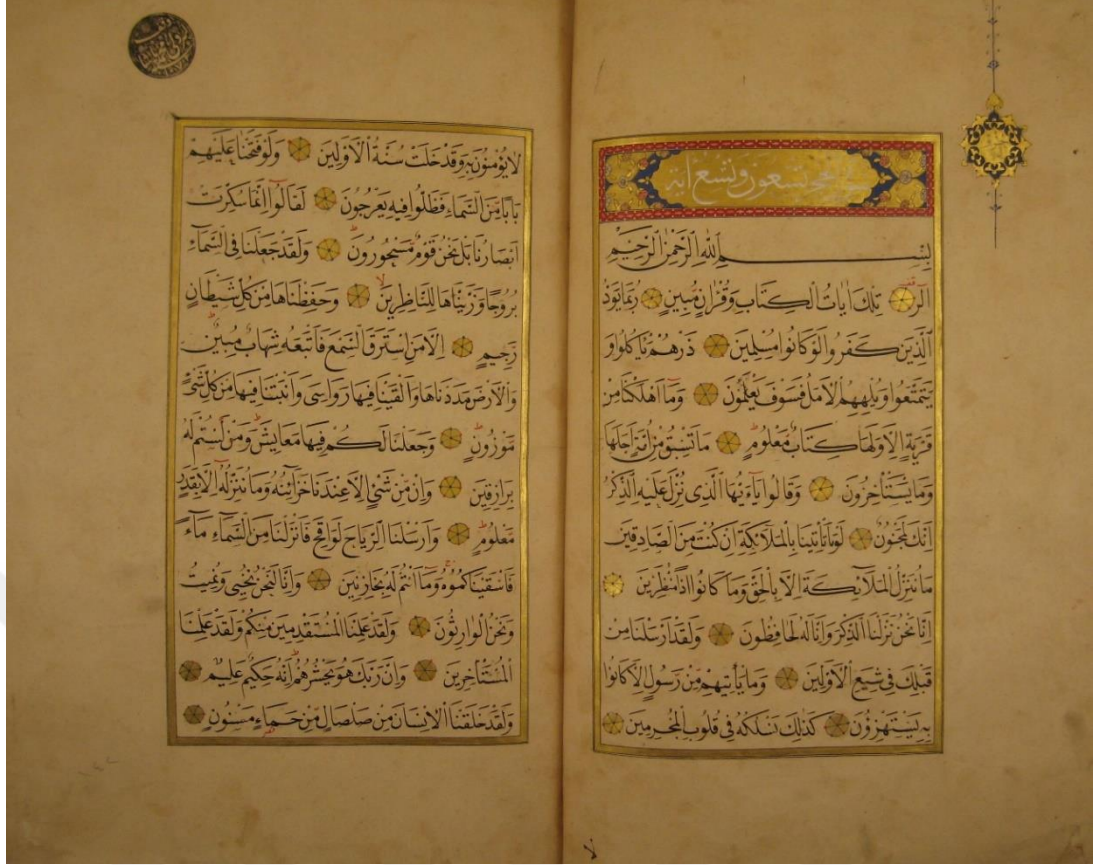 سورة حجر تسعون وتسع اية
بِسْمِ اللهِ الرَّحْمٰنِ الرَّحِيمِ
الٓرٰ تِلْكَ اٰيَاتُ الْكِتَابِ وَقُرْاٰنٍ مُبِينٍ رُبَمَا يَوَدُّ
الَّذِينَ كَفَرُوا لَوْ كَانُوا مُسْلِمِينَ ذَرْهُمْ يَأْكُلُوا وَ
يَتَمَتَّعُوا وَيُلْهِهِمُ الْاَمَلُ فَسَوْفَ يَعْلَمُونَ وَمَا اَهْلَكْنَا مِنْ
قَرْيَةٍ اِلَّا وَلَهَا كِتَابٌ مَعْلُومٌ مَا تَسْبِقُ مِنْ اُمَّةٍ اَجَلَهَا
وَمَا يَسْتَأْخِرُونَ وَقَالُوا يَآ اَيُّهَا الَّذِى نُزِّلَ عَلَيْهِ الذِّكْرُ
اِنَّكَ لَمَجْنُونٌ لَوْ مَا تَأْتِينَا بِالْمَلٰٓئِكَةِ اِنْ كُنْتَ مِنَ الصَّادِقِينَ
مَا نُنَزِّلُ الْمَلٰٓئِكَةَ اِلَّا بِالْحَقِّ وَمَا كَانُوا اِذًا مُنْظَرِينَ
اِنَّا نَحْنُ نَزَّلْنَا الذِّكْرَ وَاِنَّا لَهُ لَحَافِظُونَ وَلَقَدْ اَرْسَلْنَا مِنْ
قَبْلِكَ فِى شِيَعِ الْاَوَّلِينَ وَمَا يَأْتِيهِمْ مِنْ رَسُولٍ اِلَّا كَانُوا
بِهِ يَسْتَهْزِؤُنَ كَذٰلِكَ نَسْلُكُهُ فِى قُلُوبِ الْمُجْرِمِينَ
لَا يُؤْمِنُونَ بِهِ وَقَدْ خَلَتْ سُنَّةُ الْاَوَّلِينَ وَلَوْ فَتَحْنَا عَلَيْهِمْ
بَابًا مِنَ السَّمَاءِ فَظَلُّوا فِيهِ يَعْرُجُونَ لَقَالُوا اِنَّمَا سُكِّرَتْ
اَبْصَارُنَا بَلْ نَحْنُ قَوْمٌ مَسْحُورُونَ وَلَقَدْ جَعَلْنَا فِى السَّمَآءِ
بُرُوجًا وَزَيَّنَّاهَا لِلنَّاظِرِينَ وَحَفِظْنَاهَا مِنْ كُلِّ شَيْطَانٍ
رَجِيمٍ اِلَّا مَنِ اسْتَرَقَ السَّمْعَ فَاَتْبَعَهُ شِهَابٌ مُبِينٌ
وَالْاَرْضَ مَدَدْنَاهَا وَاَلْقَيْنَا فِيهَا رَوَاسِىَ وَاَنْبَتْنَا فِيهَا مِنْ كُلِّ شَىْءٍ
مَوْزُونٍ وَجَعَلْنَا لَكُمْ فِيهَا مَعَايِشَ وَمَنْ لَسْتُمْ لَهُ
بِرَازِقِينَ وَاِنْ مِنْ شَىْءٍ اِلَّا عِنْدَنَا خَزَآئِنُهُ وَمَا نُنَزِّلُهُ اِلَّا بِقَدَرٍ
مَعْلُومٍ وَاَرْسَلْنَا الرِّيَاحَ لَوَاقِحَ فَاَنْزَلْنَا مِنَ السَّمَآءِ مَآءً
فَاَسْقَيْنَاكُمُوهُ وَمَا اَنْتُمْ لَهُ بِخَازِنِينَ وَاِنَّا لَنَحْنُ نُحْيِى وَنُمِيتُ
وَنَحْنُ الْوَارِثُونَ وَلَقَدْ عَلِمْنَا الْمُسْتَقْدِمِينَ مِنْكُمْ وَلَقَدْ عَلِمْنَا
الْمُسْتَأْخِرِينَ وَاِنَّ رَبَّكَ هُوَ يَحْشُرُهُمْ اِنَّهُ حَكِيمٌ عَلِيمٌ
وَلَقَدْ خَلَقْنَا الْاِنْسَانَ مِنْ صَلْصَالٍ مِنْ حَمَاءٍ مَسْنُونٍ